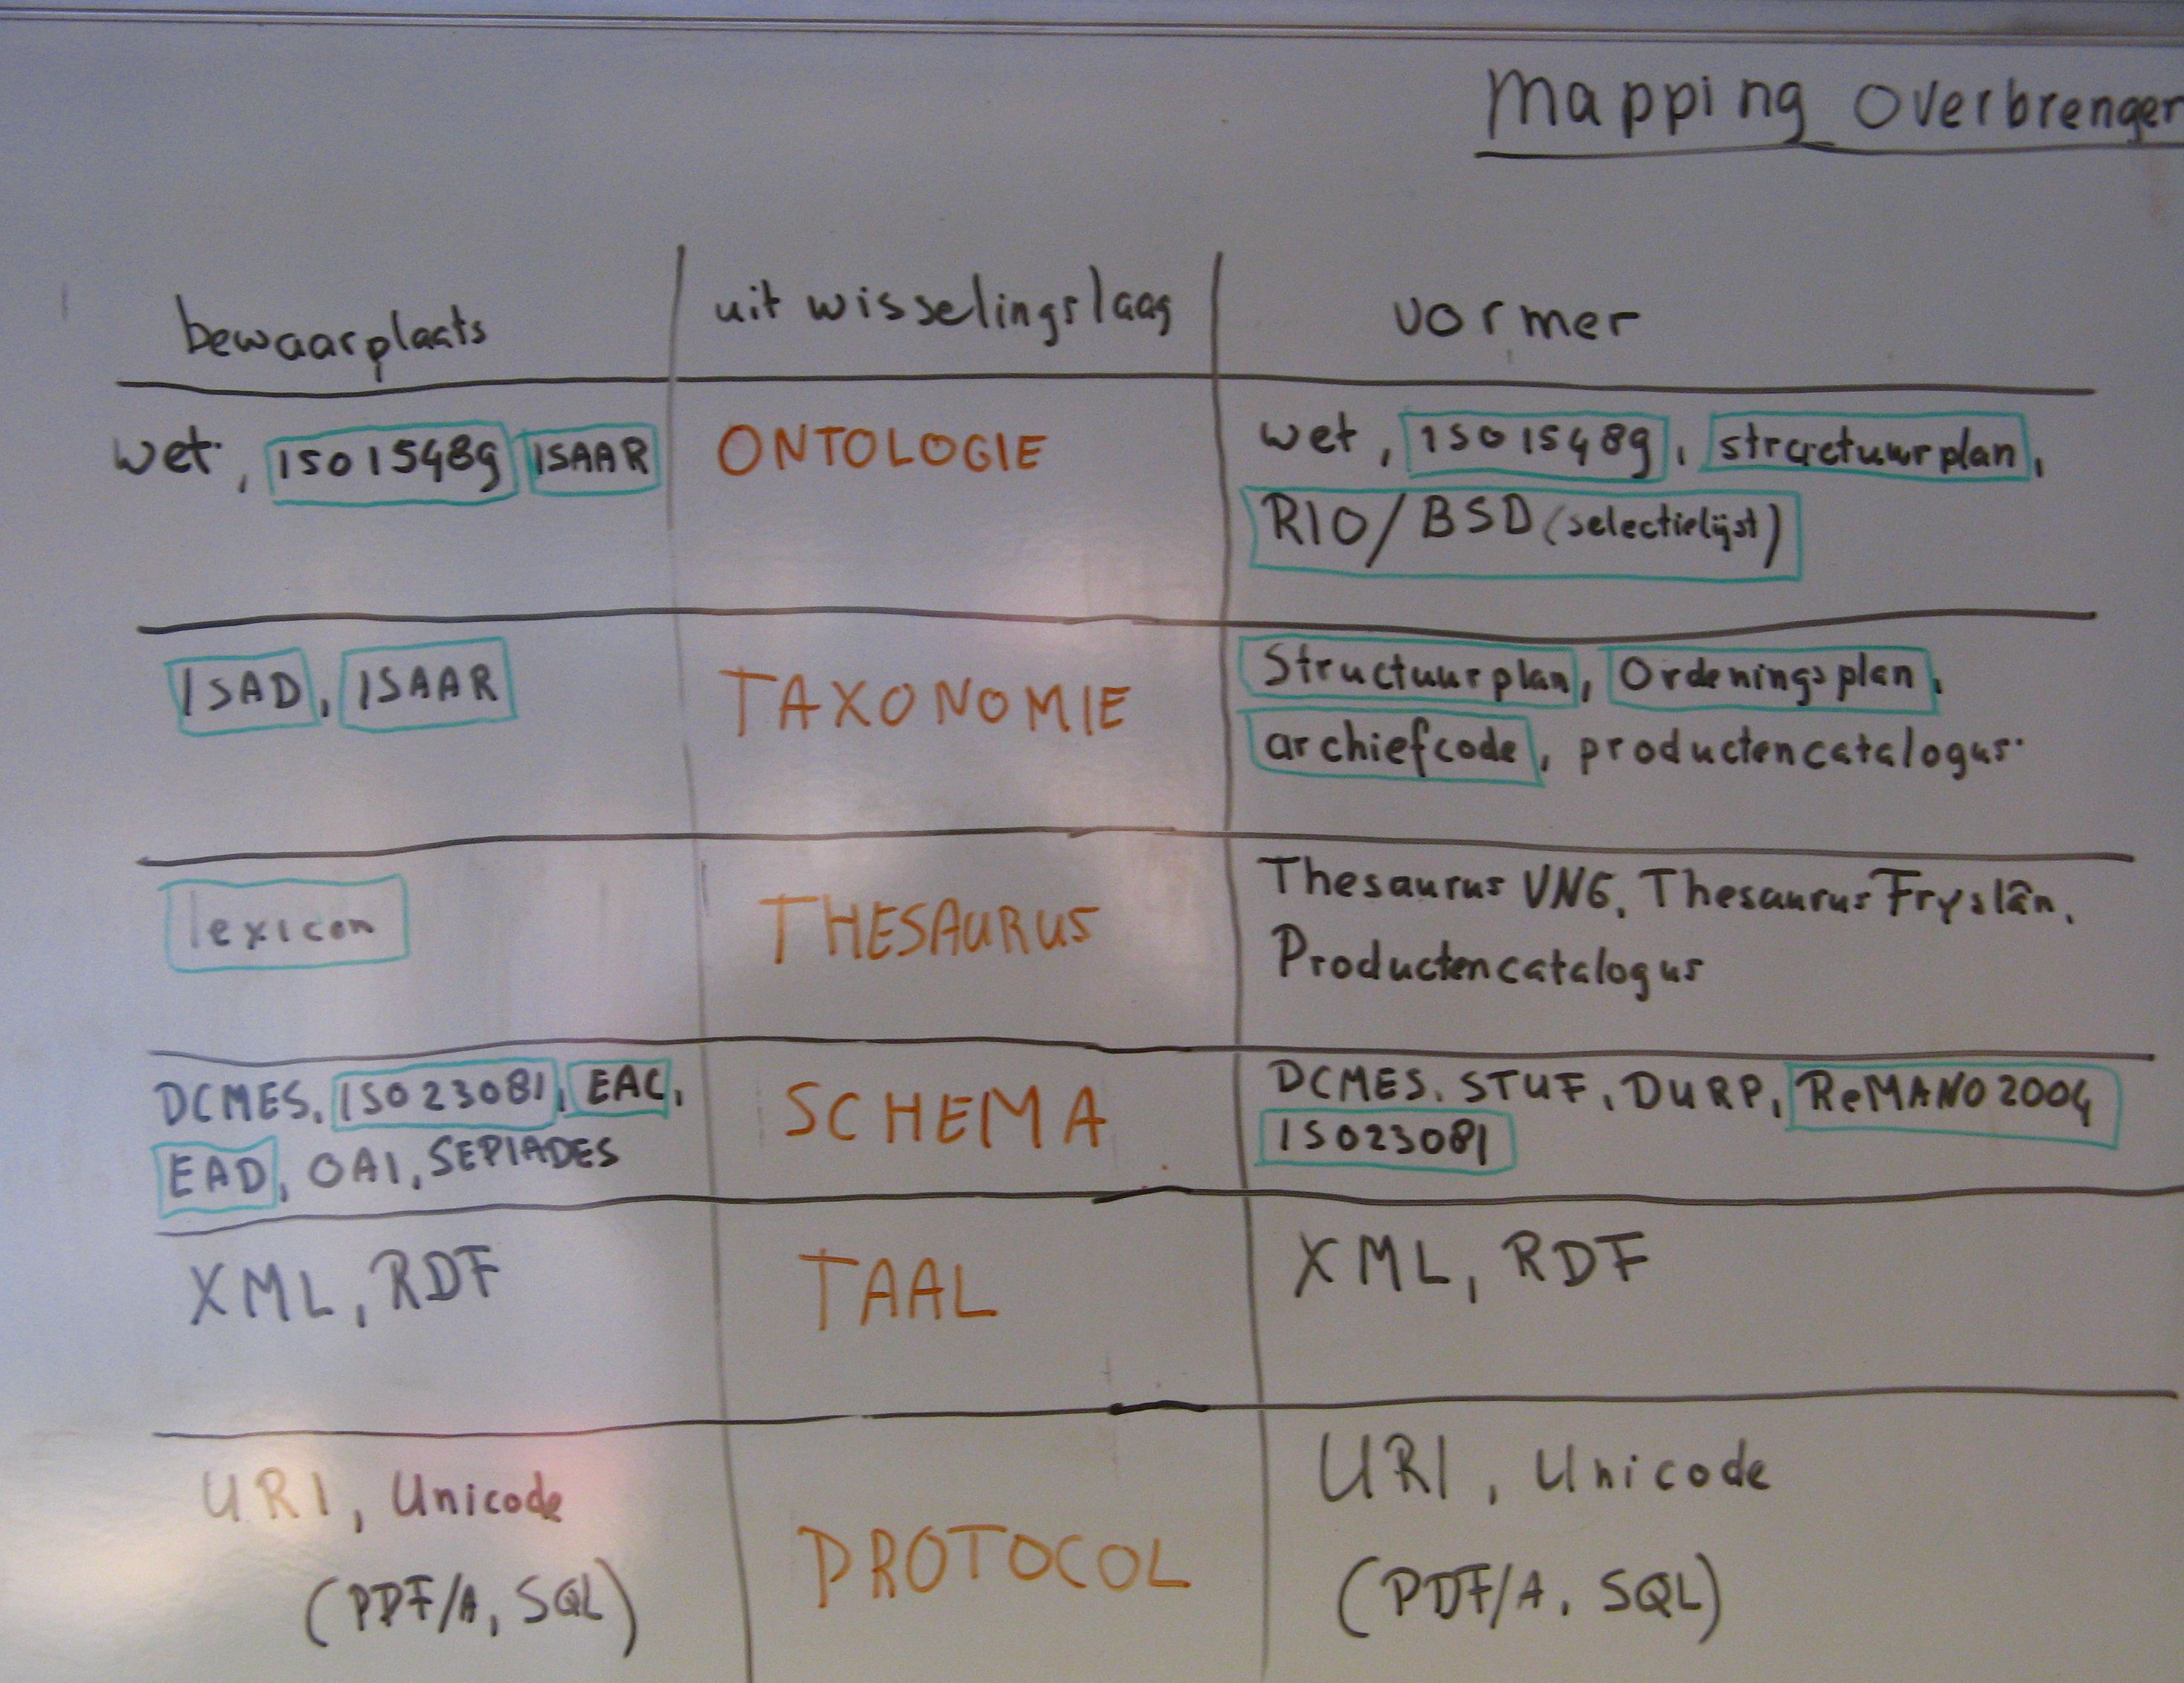 Mapping Overbrengen
bewaarplaats uitwisselingslaag vormer
wet, ISO15489 ISAAR ONTOLOGIE wet, ISO15489, structuurplan,
RIO/BSD (selectielijst)
ISAD, ISAAR TAXONOMIE Structuurplan, Ordeningsplan,
archiefcode, productencatalogus.
lexicon THESAURUS Thesaurus VNG, Thesaurus Fryslân,
Productencatalogus
DCMES, ISO23081, EAC, SCHEMA DCMES, STUF, DURP, ReMANO2004
EAD, OAI, SEPIADES ISO23081
XML, RDF TAAL XML, RDF
URI, Unicode PROTOCOL URI, Unicode
(PDF/A, SQL) (PDF/A, SQL)